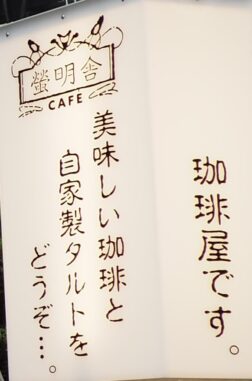 螢明舎
CAFE
珈琲屋です。
美味しい珈琲と
自家製タルトを
どうぞ…。